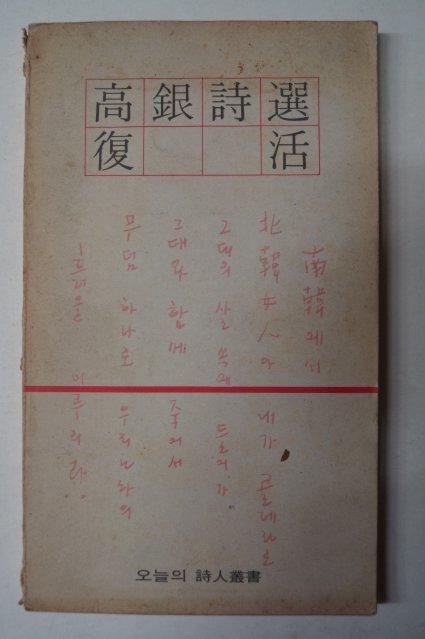 高銀詩選
復活
南韓에서
北韓女人아 내가 콜레라로
그대의 살 속에 들어가
그대와 함께 죽어서
무덤 하나로 우리나라의
흐려운 이루리라.
오늘의 詩人叢書